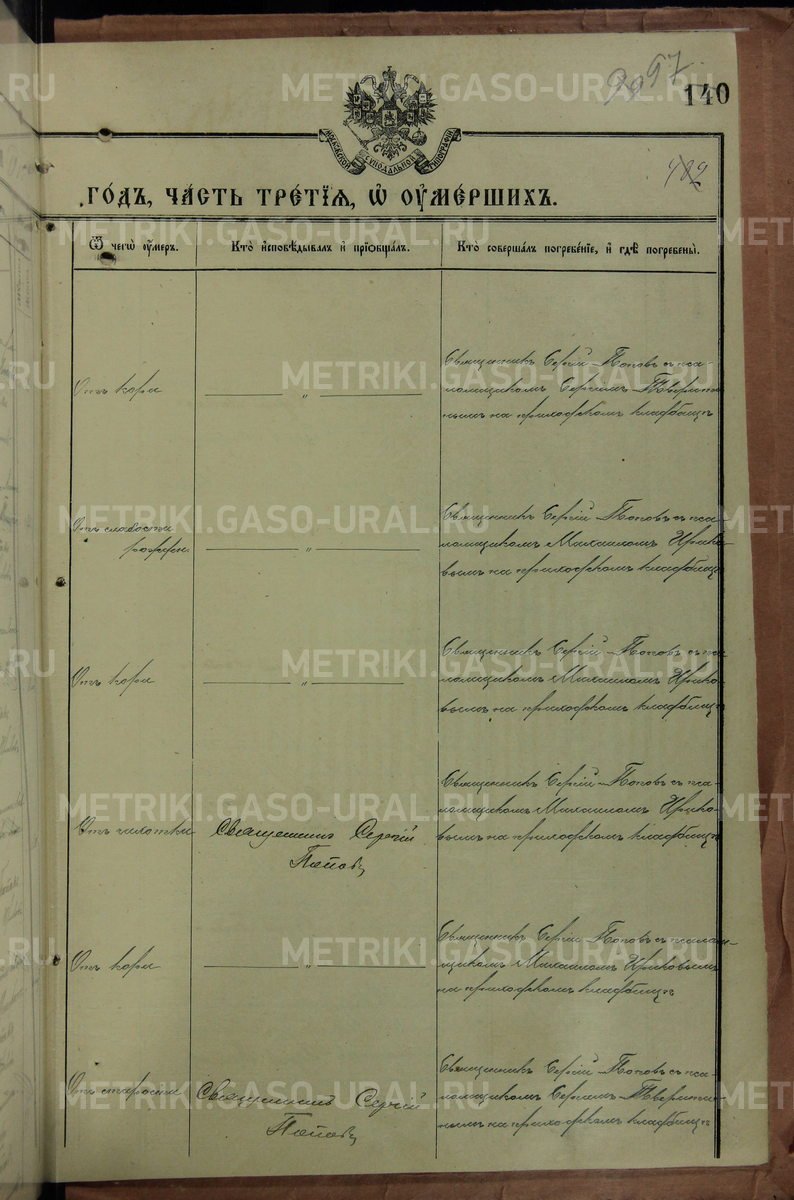 140
МОСКОВСКОЙ СѴНОДАЛЬНОЙ ТИПОГРАФІИ
ГОДЪ, ЧАСТЬ ТРЕТІЯ, Ѡ ОУМЕРШИХЪ.
Ѿ чегѡ оумеръ.
Кто исповѣдывалъ и пріобщалъ.
Кто совершалъ погребеніе, и гдѣ погребены.
Отъ кори
— „ —
Священникъ Сергій Поповъ съ пса-
ломщикомъ Сергіемъ
нымъ на приходскомъ кладбищѣ
Отъ слабости
рожден.
— „ —
Священникъ Сергій Поповъ съ пса-
ломщикомъ Михаиломъ
вымъ на приходскомъ кладбищѣ
Отъ кори
— „ —
Священникъ Сергій Поповъ съ пса-
ломщикомъ Михаиломъ
вымъ на приходскомъ кладбищѣ
Отъ чахотки
Священникъ Сергій
Поповъ
Священникъ Сергій Поповъ съ пса-
ломщикомъ Михаиломъ
вымъ на приходскомъ кладбищѣ
Отъ кори
— „ —
Священникъ Сергій Поповъ съ псалом-
щикомъ Михаиломъ
на приходскомъ кладбищѣ
Отъ старости
Священникъ Сергій
Поповъ
Священникъ Сергій Поповъ съ пса-
ломщикомъ Сергіемъ
нымъ на приходскомъ кладбищѣ
METRIKI.GASO-URAL.RU